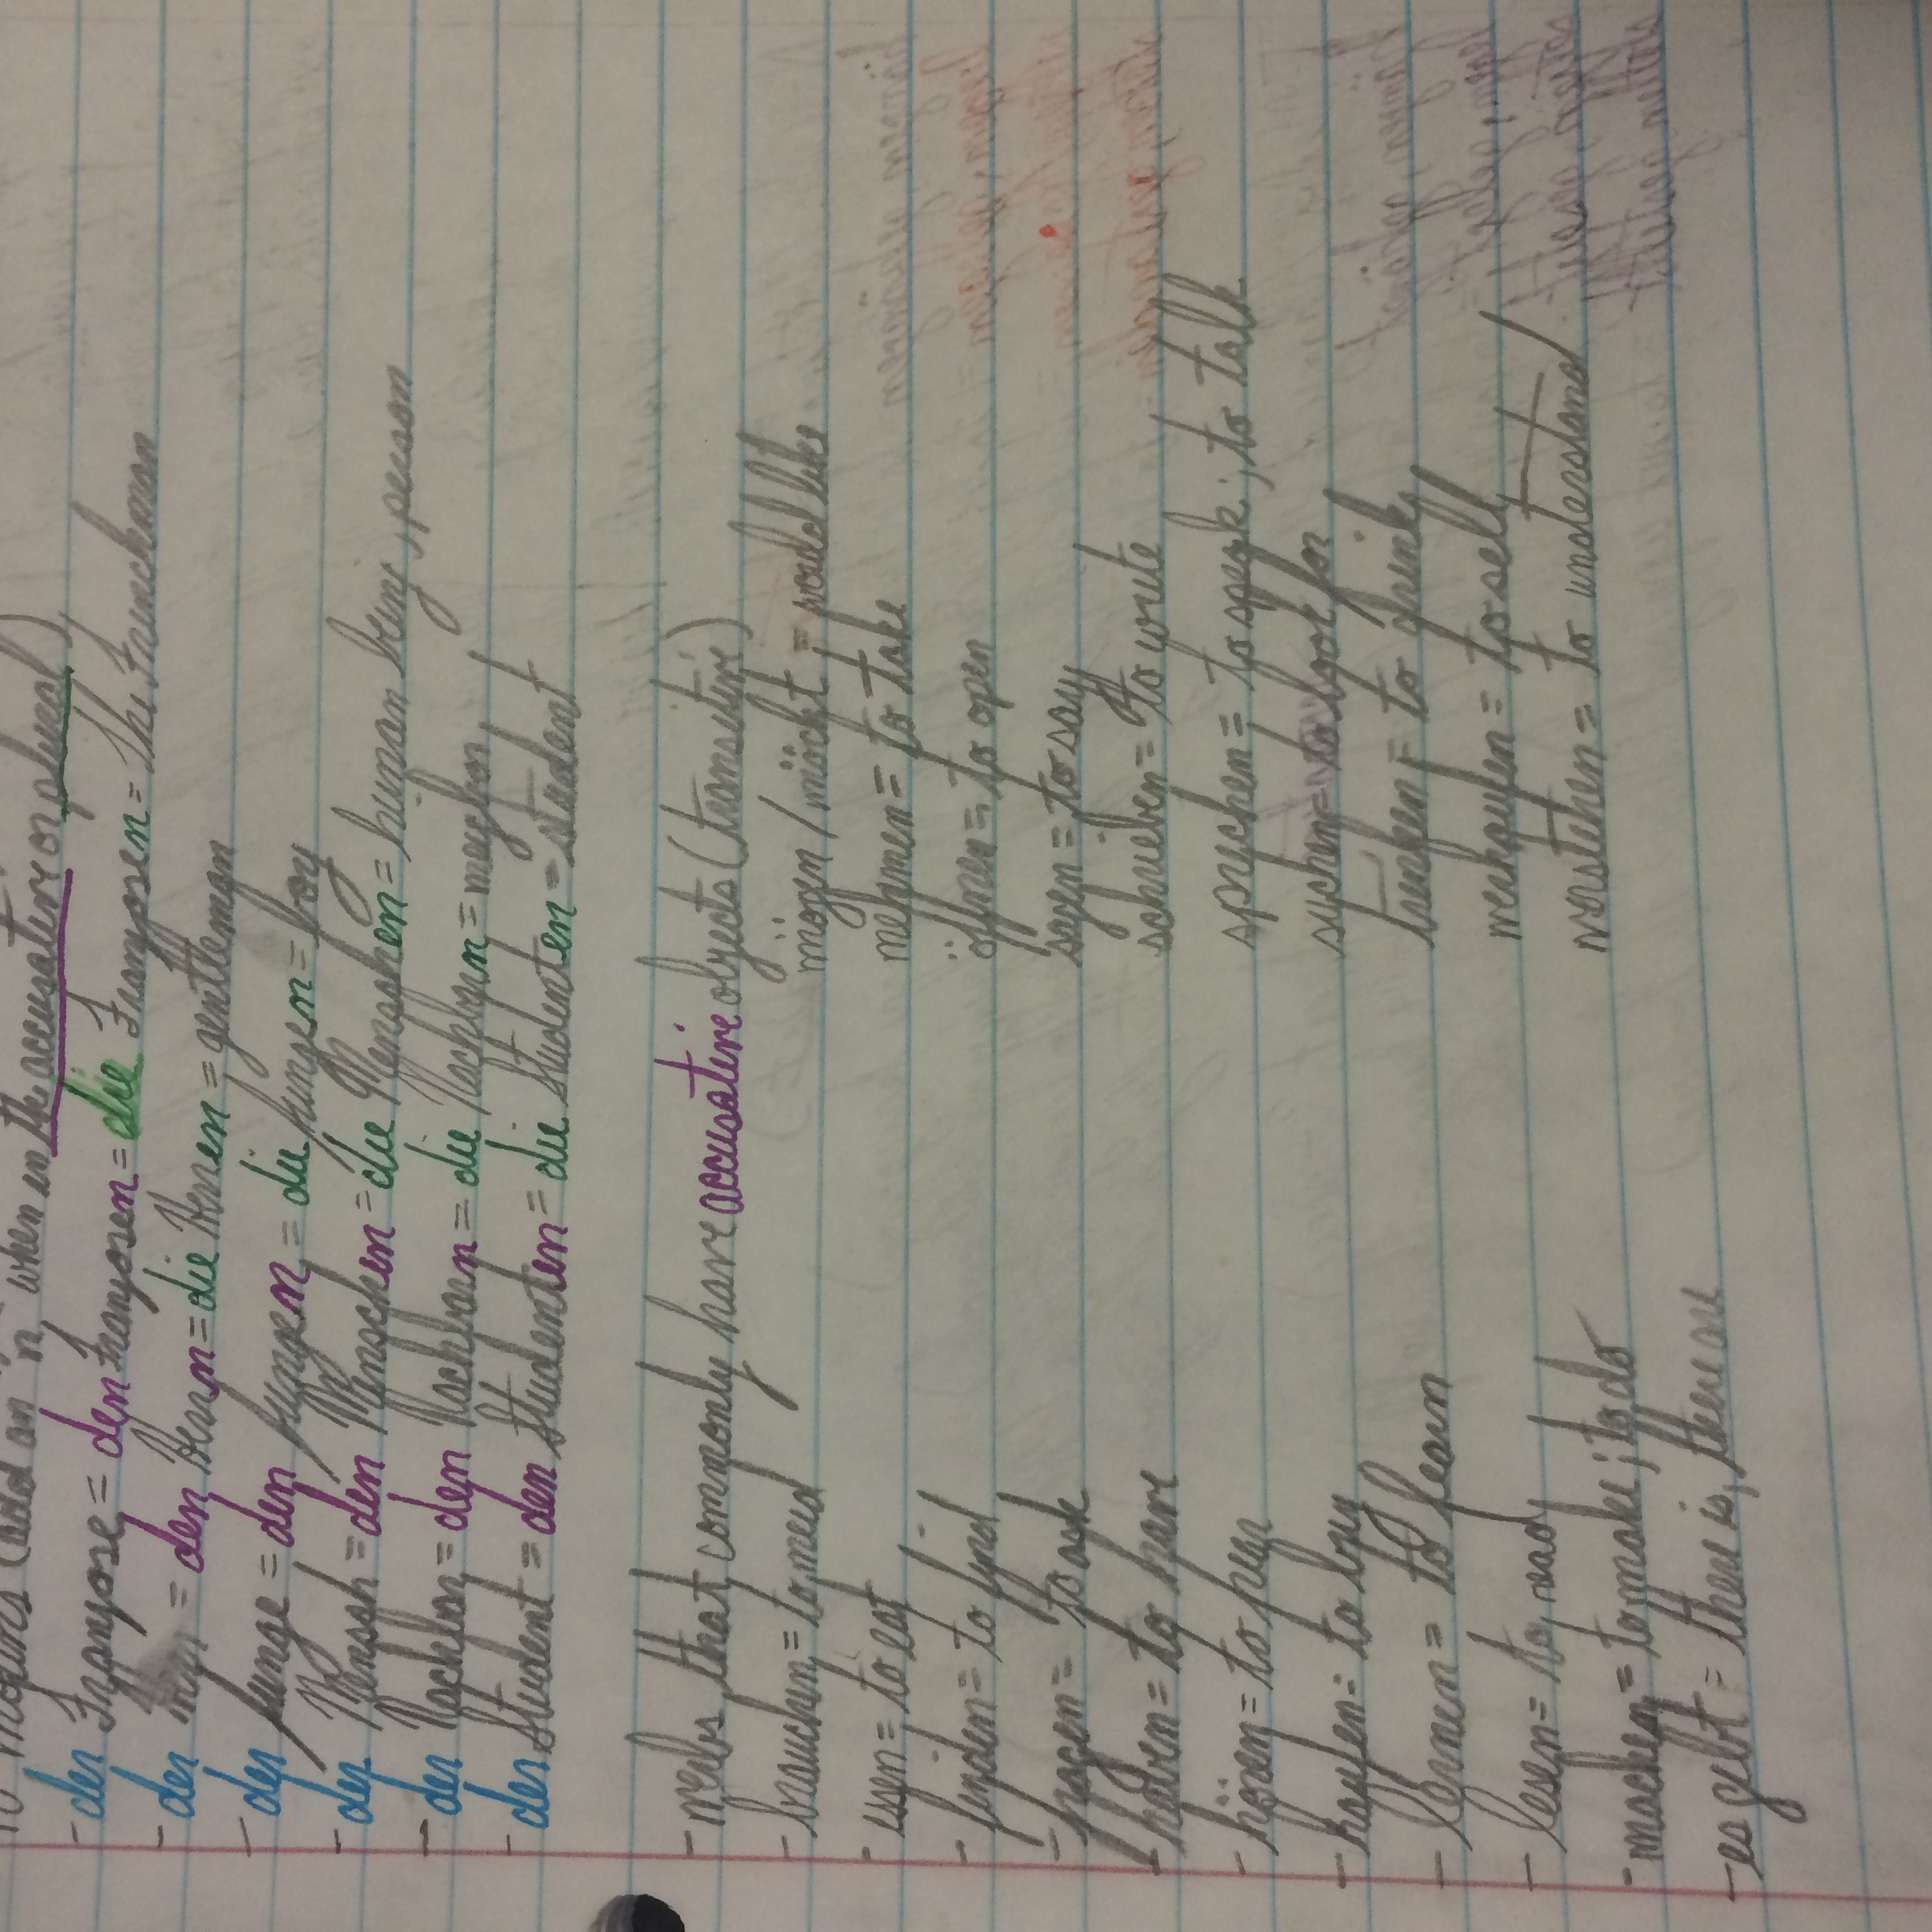 nouns (add an "n" when in the accusative or plural)
- der Franzose = den Franzosen = die Franzosen = the Frenchman
- der Herr = den Herrn = die Herren = gentleman
- der Junge = den Jungen = die Jungen = boy
- der Mensch = den Menschen = die Menschen = human being, person
- der Nachbar = den Nachbarn = die Nachbarn = neighbor
- der Student = den Studenten = die Studenten = student
- verbs that commonly have accusative objects (transitive)
- brauchen = to need
- essen = to eat
- finden = to find
- fragen = to ask
- haben = to have
- hören = to hear
- kaufen = to buy
- lernen = to learn
- lesen = to read
- machen = to make; to do
- es gibt = there is, there are
mögen / möcht = would like
nehmen = to take
öffnen = to open
sagen = to say
schrieben = to write
sprechen = to speak; to talk
suchen = to look for
trinken = to drink
verkaufen = to sell
verstehen = to understand